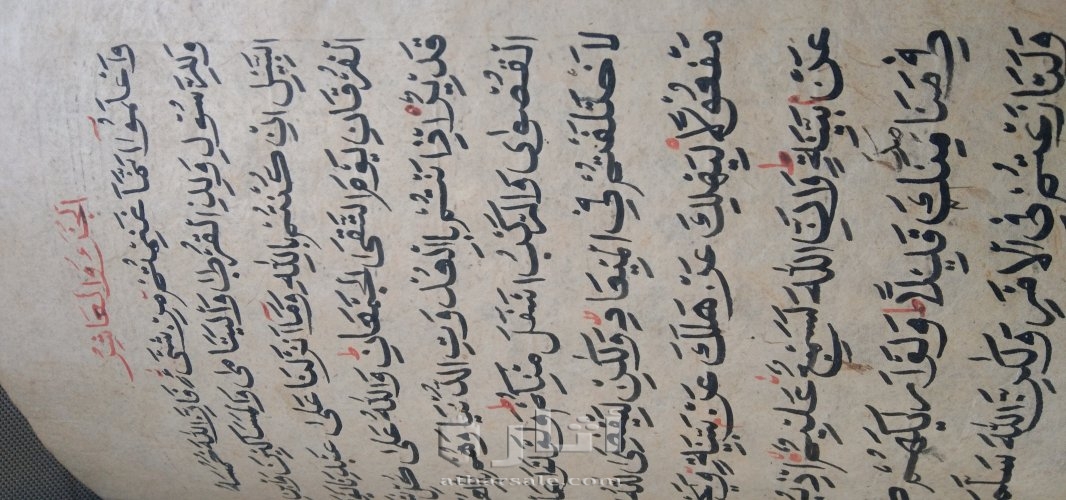 الجزء والعاشر
وَاعْلَمُوا أَنَّمَا غَنِمْتُمْ مِنْ شَيْءٍ فَأَنَّ لِلَّهِ خُمُسَهُ
وَلِلرَّسُولِ وَلِذِي الْقُرْبَى وَالْيَتَامَى وَالْمَسَاكِينِ وَابْنِ
السَّبِيلِ اِنْ كُنْتُمْ بِاللَّهِ وَمَا أَنْزَلْنَا عَلَى عَبْدِنَا
الْفُرْقَانِ يَوْمَ الْتَقَى الْجَمْعَانِ وَاللَّهُ عَلَى
قَدِيرٌ اِذْ اَنْتُمْ بِالْعُدْوَةِ الدُّنْيَا وَهُمْ
الْقُصْوَى وَالرَّكْبُ اَسْفَلَ مِنْكُمْ وَلَوْ
لَاخْتَلَفْتُمْ فِي الْمِيعَادِ وَلَكِنْ لِيَقْضِيَ اللَّهُ
مَفْعُولًا لِيَهْلِكَ مَنْ هَلَكَ عَنْ بَيِّنَةٍ
عَنْ بَيِّنَةٍ وَاِنَّ اللَّهَ لَسَمِيعٌ عَلِيمٌ اِذْ
فِي مَنَامِكَ قَلِيلًا وَلَوْ اَرَيكَهُمْ
وَلَتَنَازَعْتُمْ فِي الْاَمْرِ وَلَكِنَّ اللَّهَ سَلَّمَ
آثار
atharsale.com